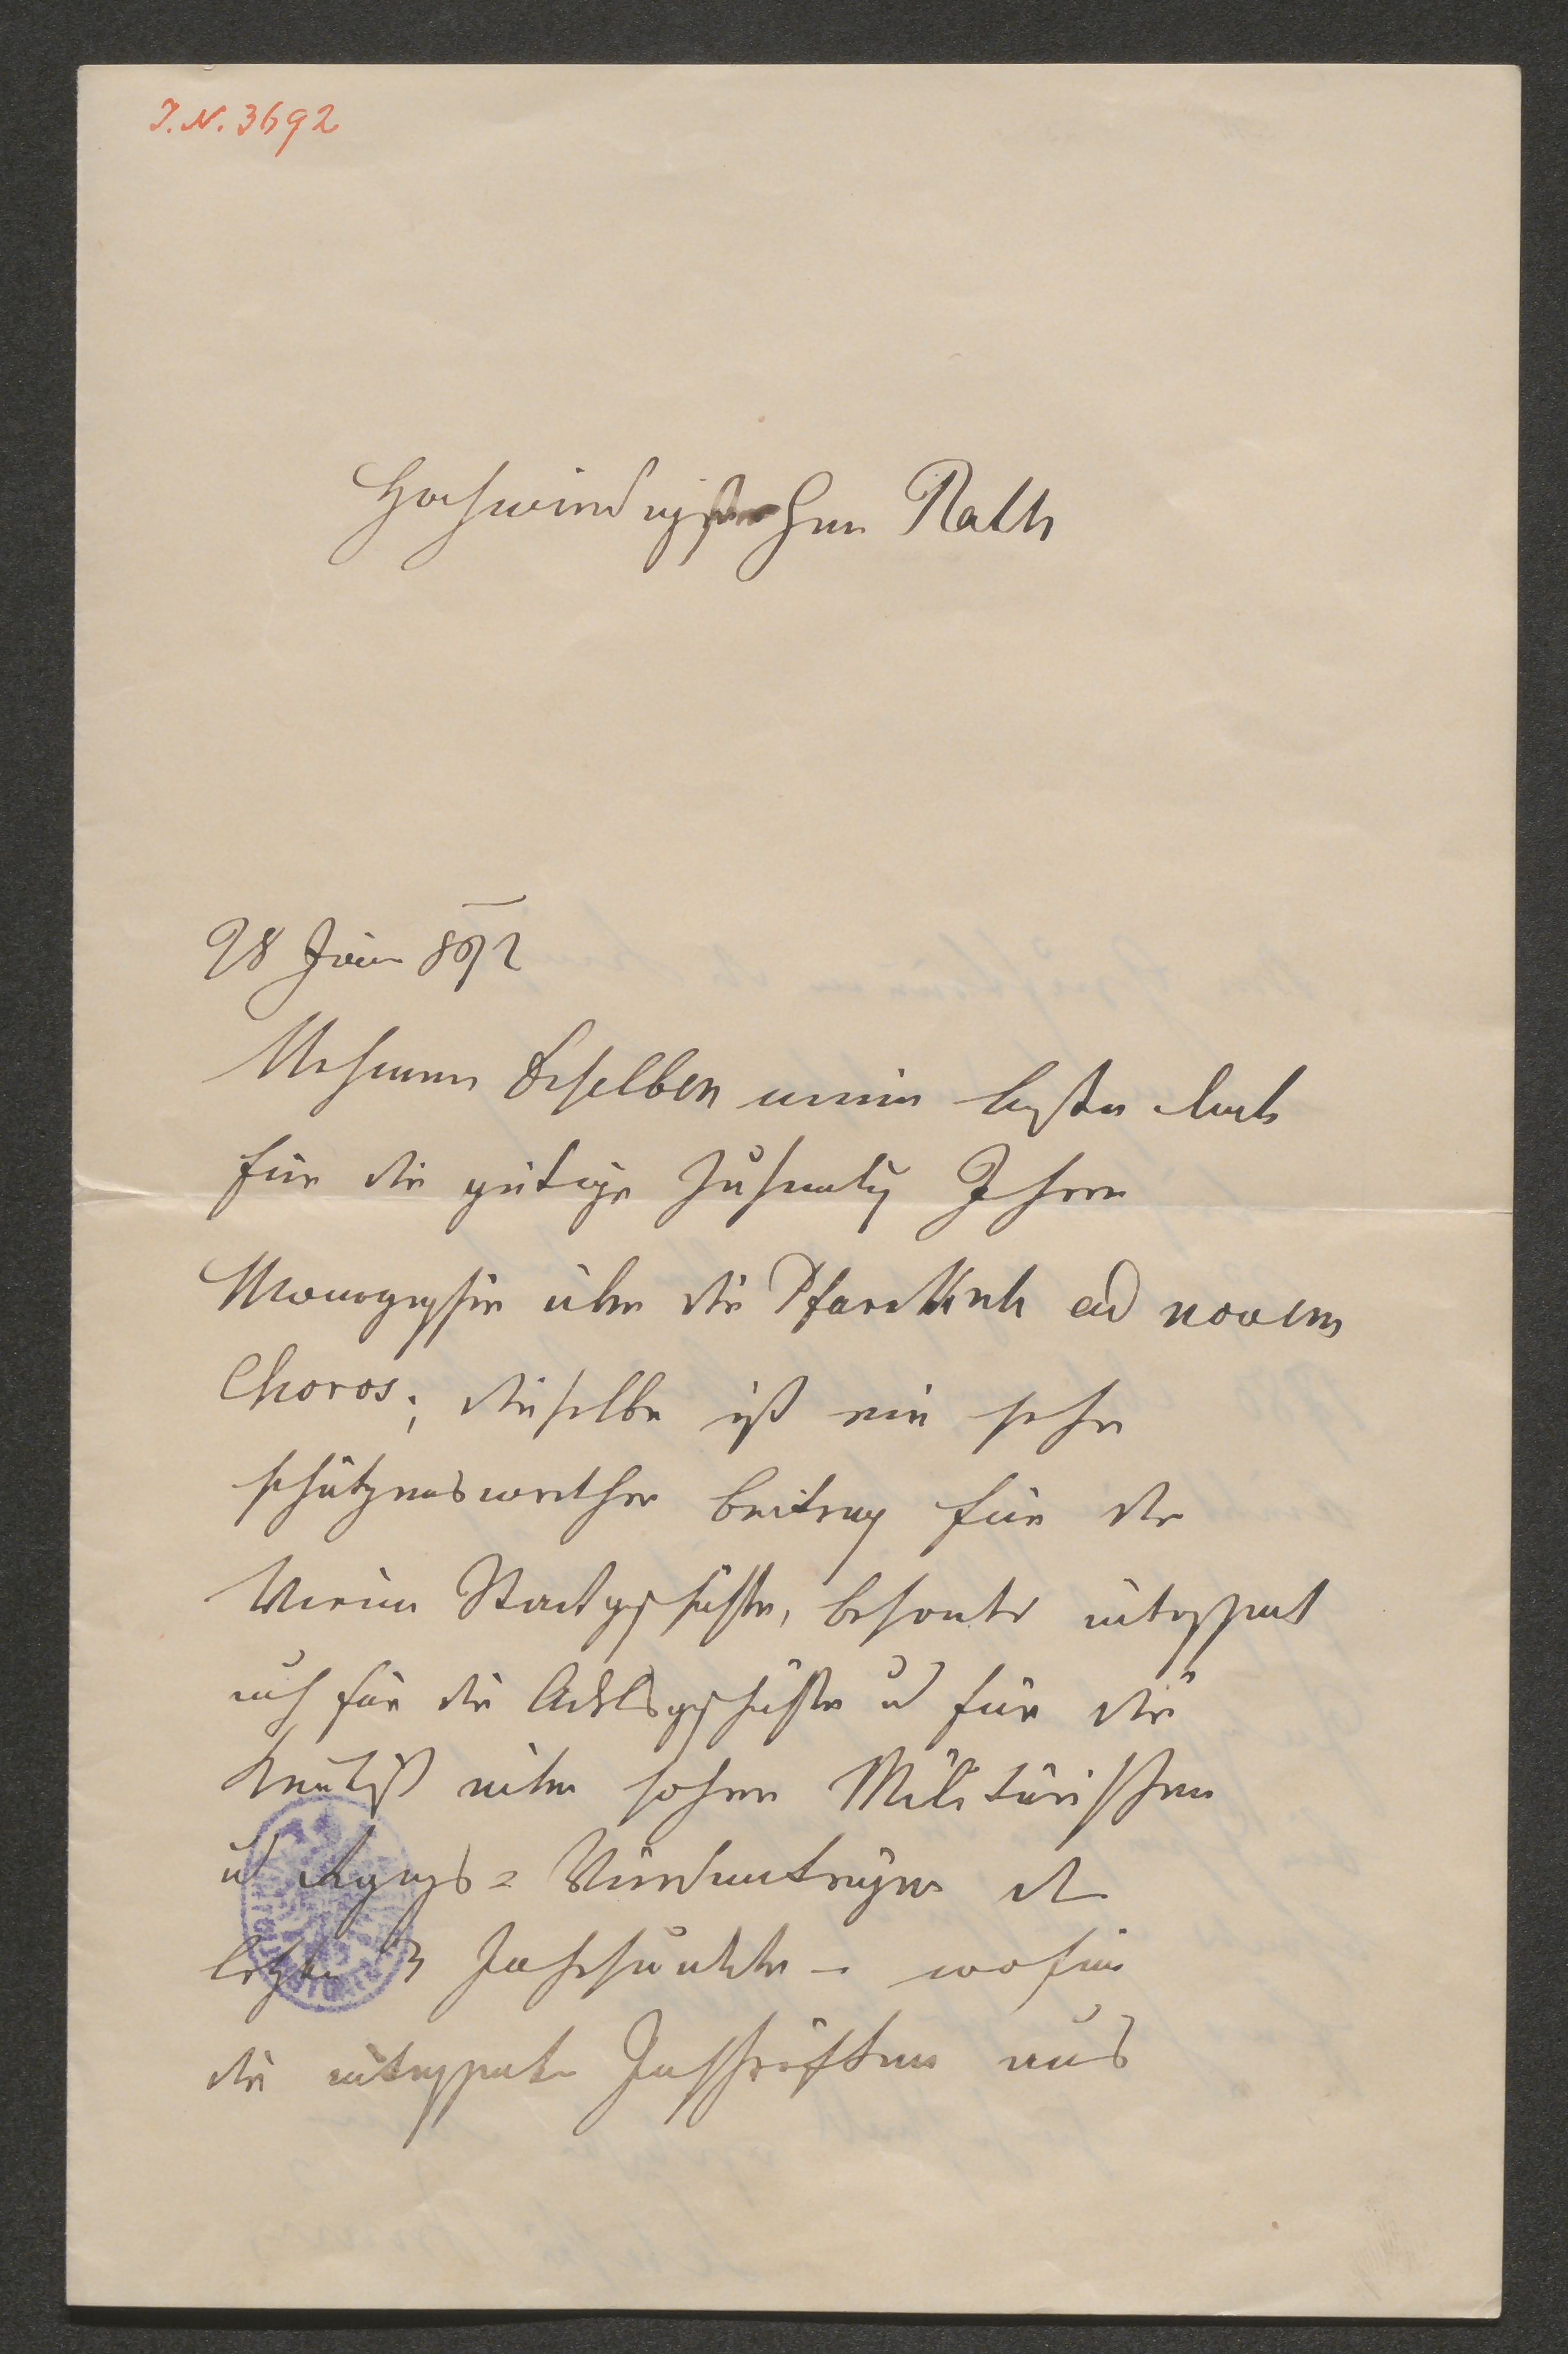 J. N. 3692
Hochwürdigster Herr Rath
28 Juni 892
Nehmen dieselben meinen besten Dank
für die gütige Zusendung Ihrer
Monographie über die Pfarrkirche ad novem
Choros; dieselbe ist ein sehr
schätzenswerther Beitrag für die
Wiener Stadtgeschichte, besonders interessant
auch für die Adelsgeschichte und für die
Kenntniß vieler hoher Militärischen
und Würdenträger der
letzten 3 Jahrhunderte – wofür
die interessanten Inschriften aus